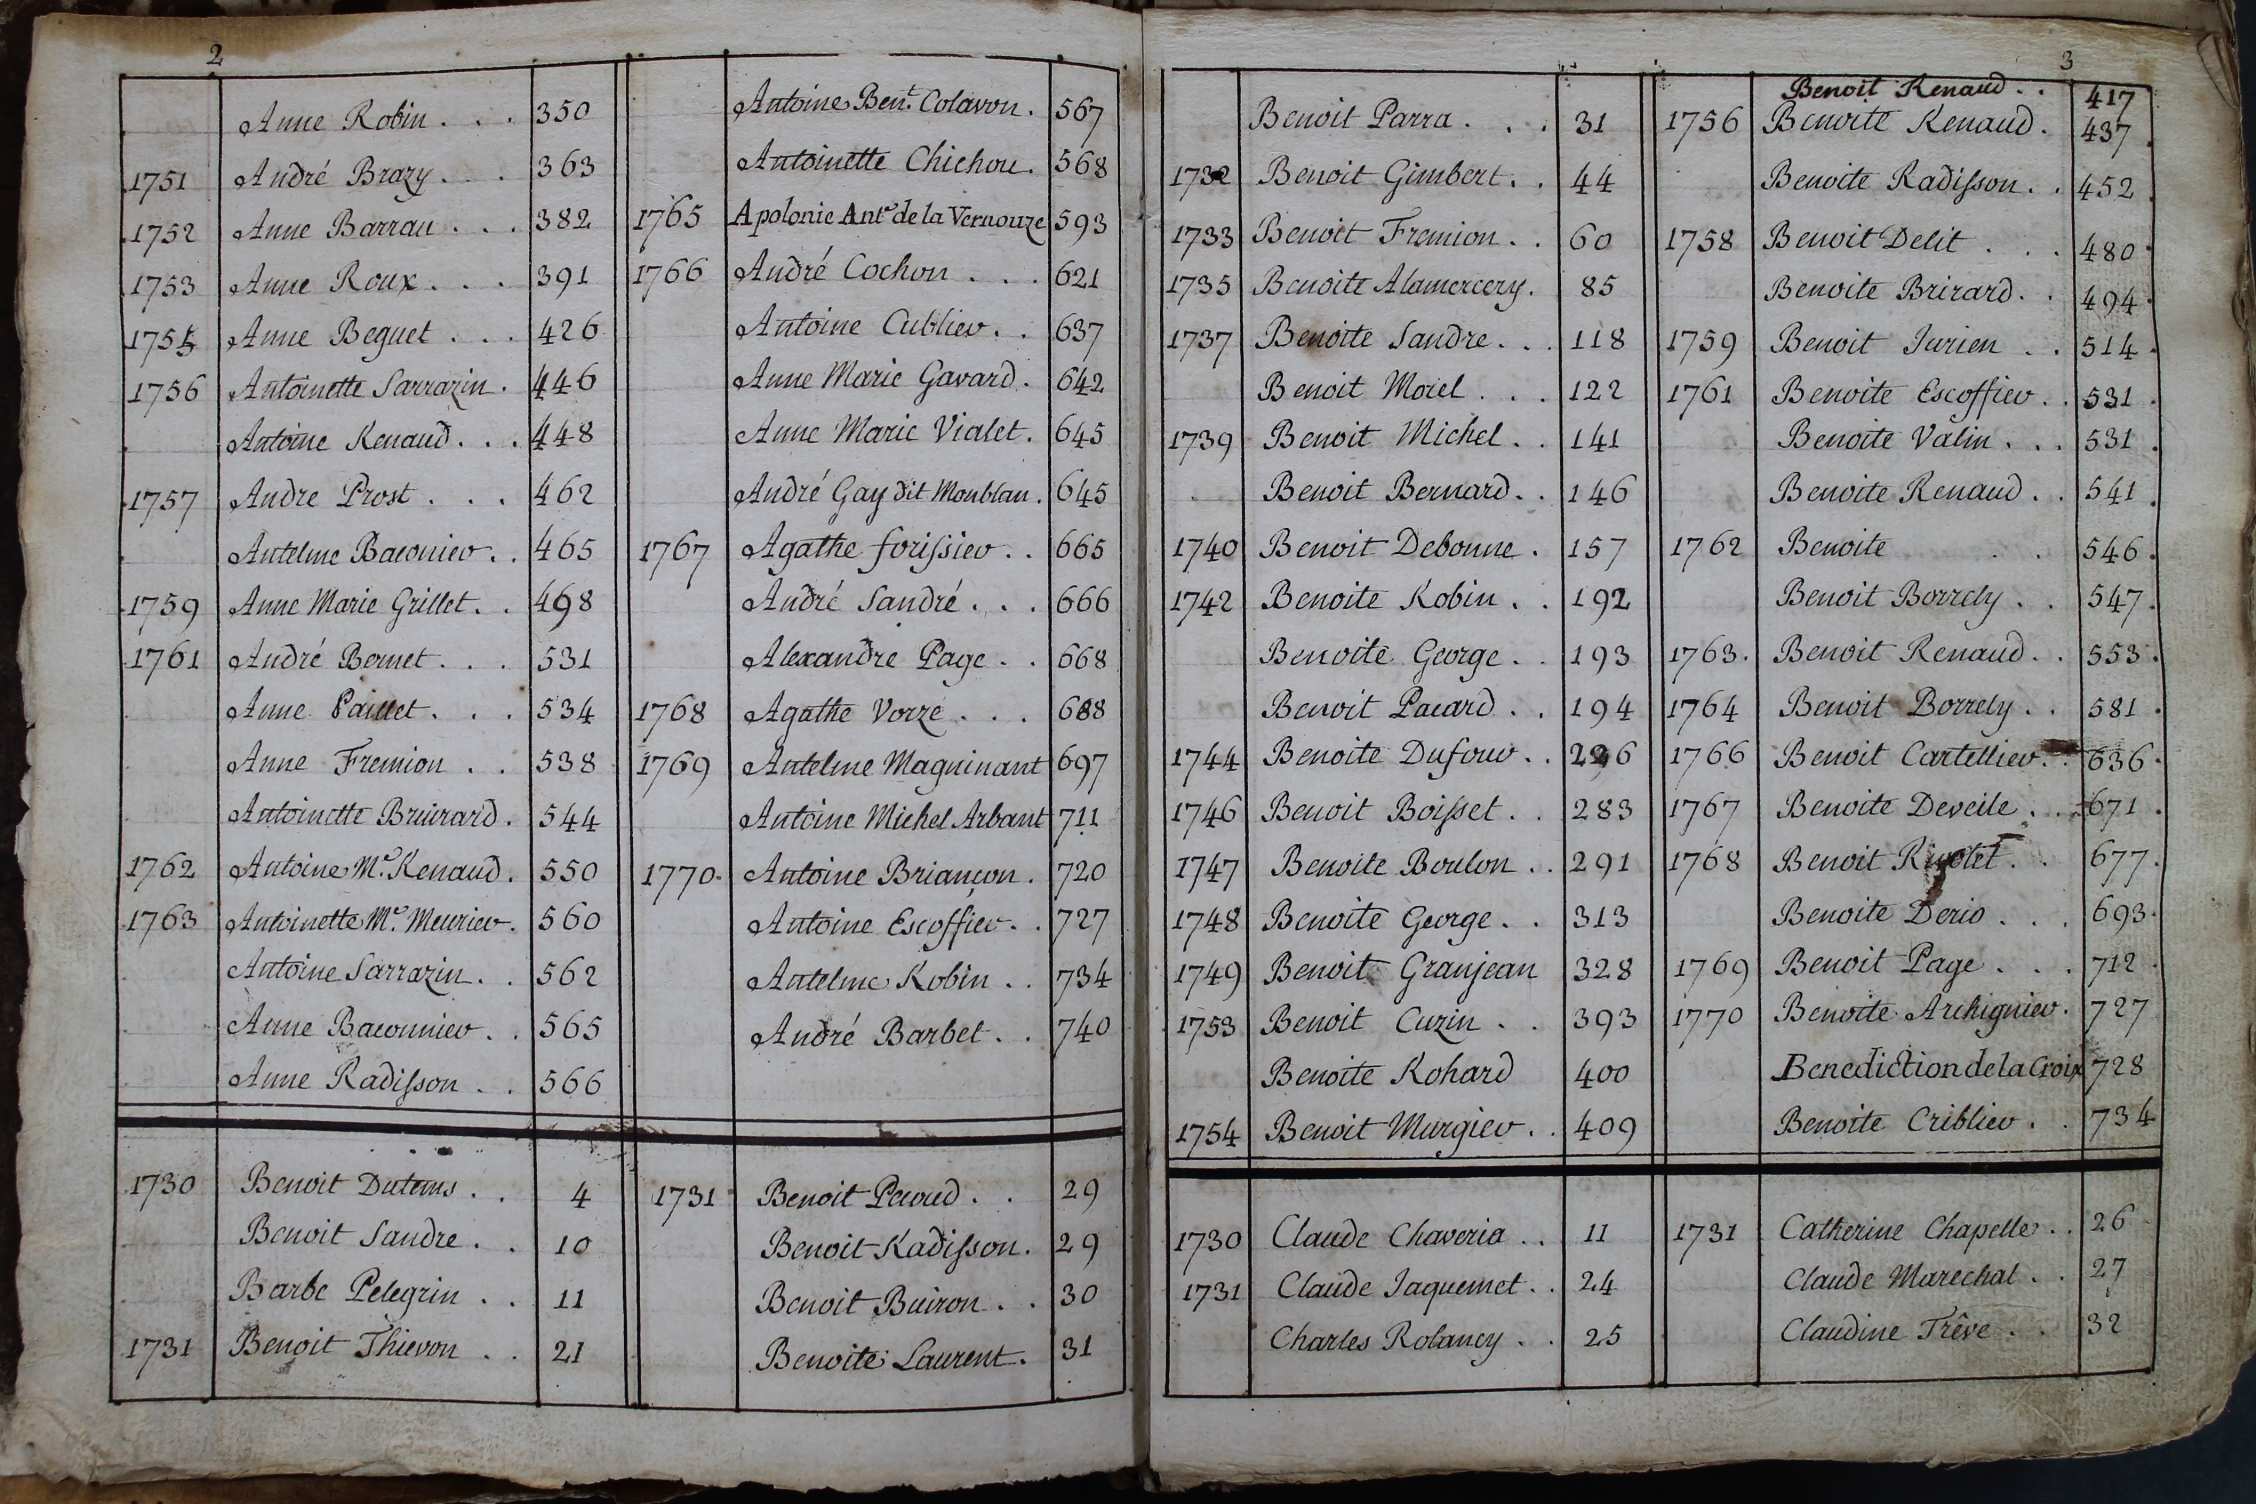 2
Anne Robin . . . 350
1751 André Brazy . . . 363
1752 Anne Barrau . . . 382
1753 Anne Roux . . . 391
1755 Anne Beguet . . . 426
1756 Antoinette Sarrazin . 446
Antoine Renaud . . . 448
1757 Andre Prost . . . 462
Antelme Baconier . . 465
1759 Anne Marie Grillet . . 498
1761 André Bernet . . . 531
Anne Paillet . . . 534
Anne Fremion . . 538
Antoinette Bruirard . 544
1762 Antoine Me. Renaud . 550
1763 Antoinette Me. Meurier . 560
Antoine Sarrazin . . 562
Anne Baconnier . . 565
Anne Radisson . . 566
Antoine Bent. Colavon . 567
Antoinette Chichou . 568
1765 Apolonie Ante de la Vernouze 593
1766 André Cochon . . . 621
Antoine Cublier . . 637
Anne Marie Gavard . 642
Anne Marie Vialet . 645
André Gay dit Monblan . 645
1767 Agathe forissier . . 665
André Sandré . . . 666
Alexandre Page . . 668
1768 Agathe Vorze . . . 688
1769 Antelme Maguinant 697
Antoine Michel Arbant 711
1770 . Antoine Briançon . 720
Antoine Escoffier . . 727
Antelme Robin . . 734
André Barbet . . 740
1730 Benoit Dutems . . 4
Benoit Sandre . . 10
Barbe Pelegrin . . 11
1731 Benoit Thievon . . 21
1731 Benoit Peroud . . 29
Benoit Radisson . 29
Benoit Buiron . . 30
Benoite Laurent . 31
3
Benoit Parra . . . 31
1732 Benoit Gimbert . . 44
1733 Benoit Fremion . . 60
1735 Benoite Alamercery . 85
1737 Benoite Sandre . . . 118
Benoit Morel . . . 122
1739 Benoit Michel . . 141
Benoit Bernard . . 146
1740 Benoit Debonne . 157
1742 Benoite Robin . . 192
Benoite George . . 193
Benoit Pacard . . 194
1744 Benoite Dufour . .
1746 Benoit Boisset . . 283
1747 Benoite Boulon . . 291
1748 Benoite George . . 313
1749 Benoit Granjean 328
1753 Benoit Cuzin . . 393
Benoite Rohard 400
1754 Benoit Murgier . . 409
Benoit Renaud . . 417
1756 Benoite Renaud . 437
Benoite Radisson . . 452
1758 Benoit Delit . . . 480
Benoite Brirard . . 494
1759 Benoit Jurien . . 514
1761 Benoite Escoffier . . 531
Benoite Valin . . . 531
Benoite Renaud . . 541
1762 Benoite . . 546
Benoit Borrely . . 547
1763 . Benoit Renaud . . 553
1764 Benoit Borrely . . 581
1766 Benoit Cartellier . . 636
1767 Benoite Deveile . . . 671
1768 Benoit . . 677
Benoite Derio . . . 693
1769 Benoit Page . . . 712
1770 Benoite Archignier . 727
Benediction de la Croix 728
Benoite Criblier . . 734
1730 Claude Chaveria . . 11
1731 Claude Jaquemet . . 24
Charles Rolancy . . 25
1731 Catherine Chapelle . . 26
Claude Marechal . . 27
Claudine Trêve . . 32